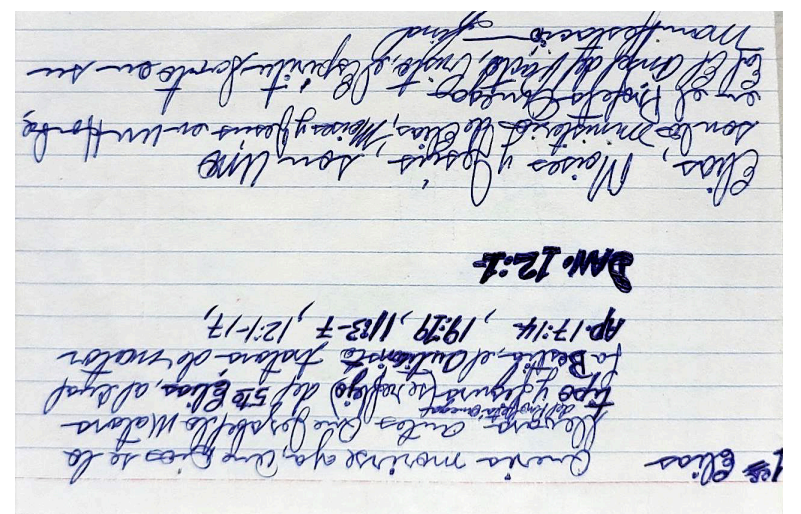 1er Elias Queria morirse aya, Que Dios se lo
llevara antes que Jezabel lo Matara
del Profeta Omega
tipo y figura (se reflejo) del 5to Elias, al cual
La Bestia, el Anticristo tratara de matar
Ap. 17:14, 19:19, 11:3-7, 12:1-17,
DAN. 12:1-
Elias, Moises y Jesus, son Uno
son los ministerios de Elias, Moises y Jesus en un Hombre,
en el Profeta Omega
El Angel del Pacto, Cristo, el Espiritu Santo en su
Manifestacio final